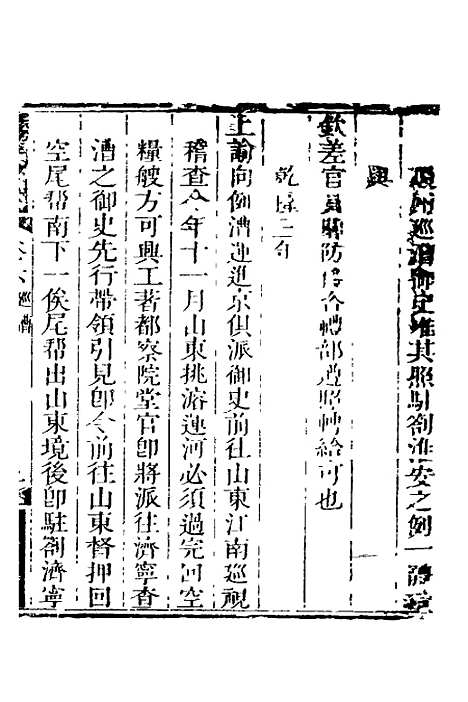 州巡漕御史准其照駐劄淮安之例一體
與
欽差官員關防俟命禮部遵照轉給可也
乾隆二年
上諭向例漕運進京俱派御史前往山東江南巡視
稽查今年十一月山東挑濬運河必須過完回空
糧艘方可興工著都察院堂官卽將派往濟寧查
漕之御史先行帶領引見卽令前往山東督押回
空尾幫南下一俟尾幫出山東境後卽駐劄濟寧
巡漕